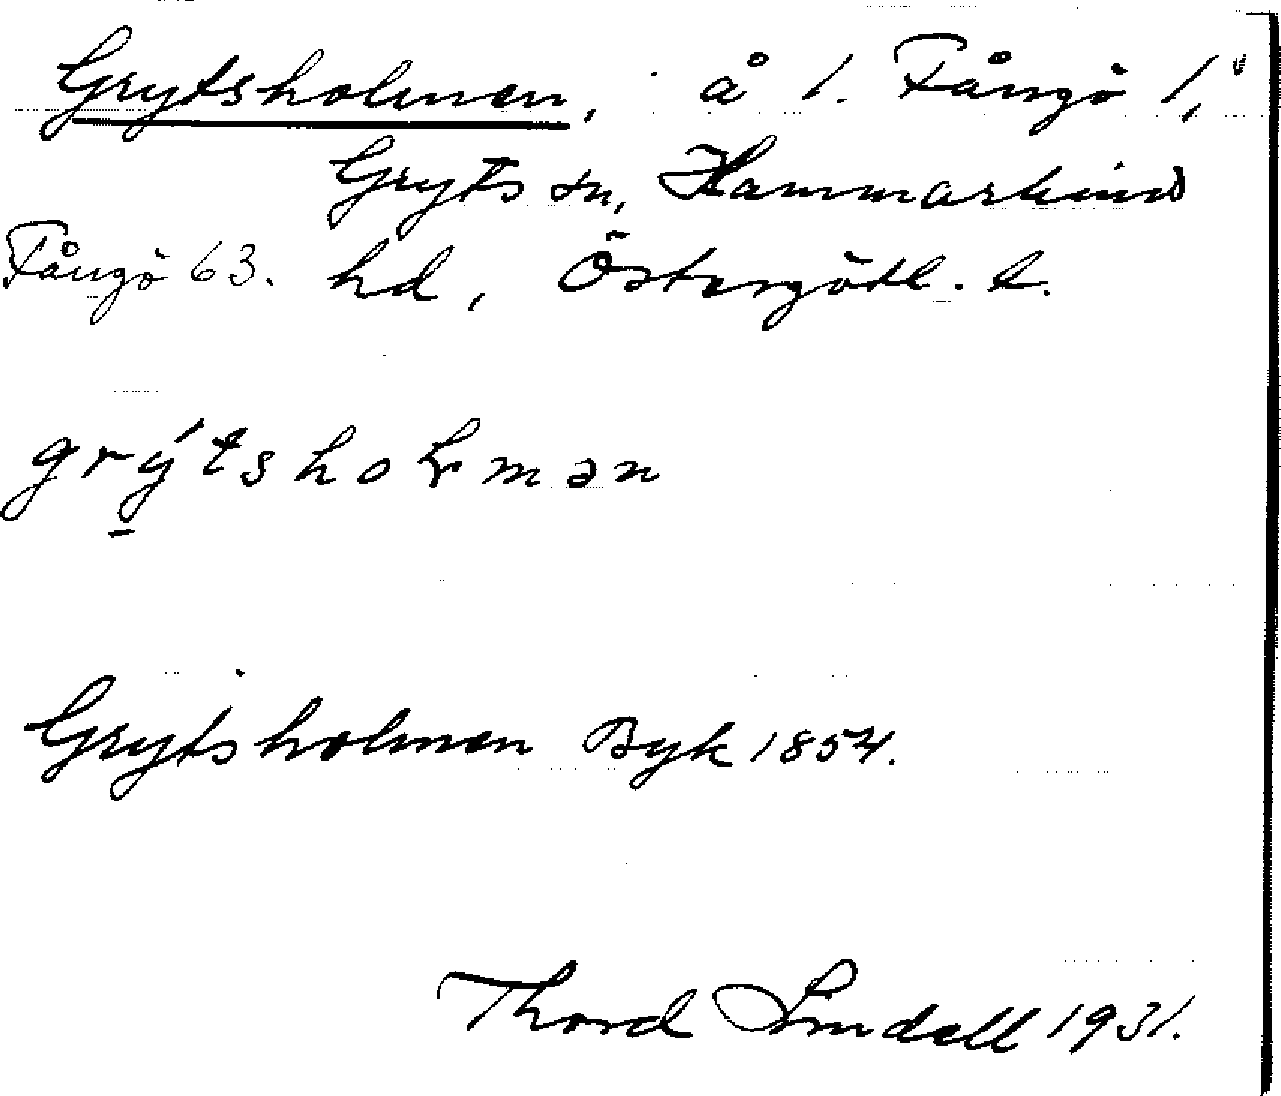 Grytsholmen, å 1. Fångö 1,
Gryts sn, Hammarkind
Fångö 63. hd, Östergötl. l.
grýtshoɫmən
Grytsholmen Byk 1854.
Thord Lindell 1931.